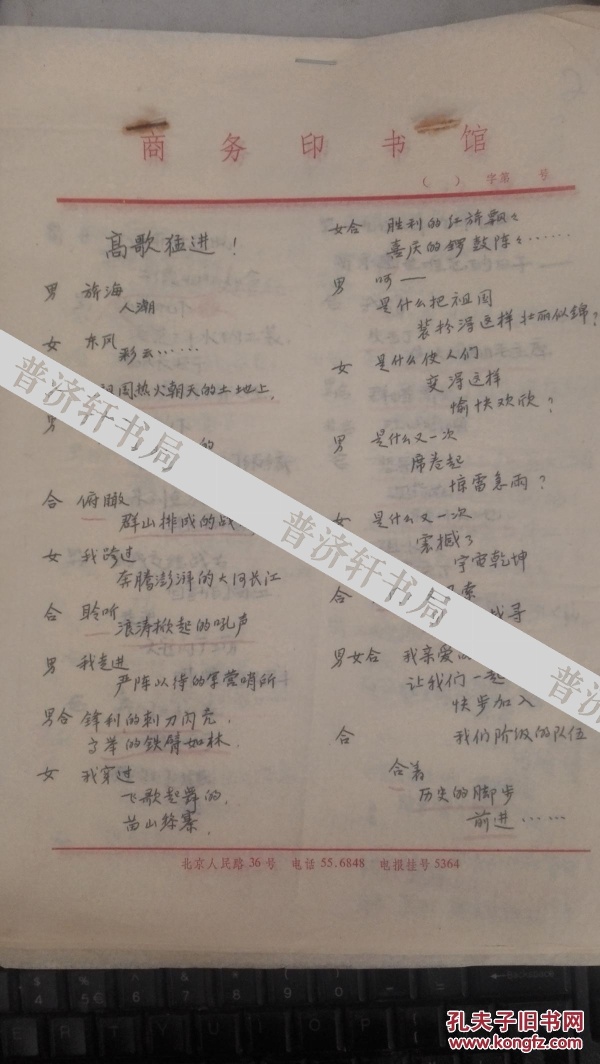 商务印书馆
（ ）字第 号
高歌猛进！
男 旗海
人潮
女 东风
彩云……
祖国热火朝天的土地上，
男
的
合 俯瞰
群山排成的战
女 我跨过
奔腾澎湃的大河长江
合 聆听
浪涛掀起的吼声
男 我走进
严阵以待的军营哨所
男合 锋利的刺刀闪亮，
高举的铁臂如林，
女 我穿过
飞歌起舞的，
苗山彝寨，
女合 胜利的红旗飘飘
喜庆的锣鼓阵阵……
男 呵——
是什么把祖国
装扮得这样壮丽似锦？
女 是什么使人们
变得这样
愉快欢欣？
男 是什么又一次
席卷起
惊雷急雨？
女 是什么又一次
震撼了
宇宙乾坤
合
索
找寻
男女合 我亲爱
让我们一起
快步加入
合 我们阶级的队伍
合着
历史的脚步
前进……
北京人民路36号 电话55.6848 电报挂号5364
普济轩书局
普济轩书局
普济
孔夫子旧书网
www.kongfz.com